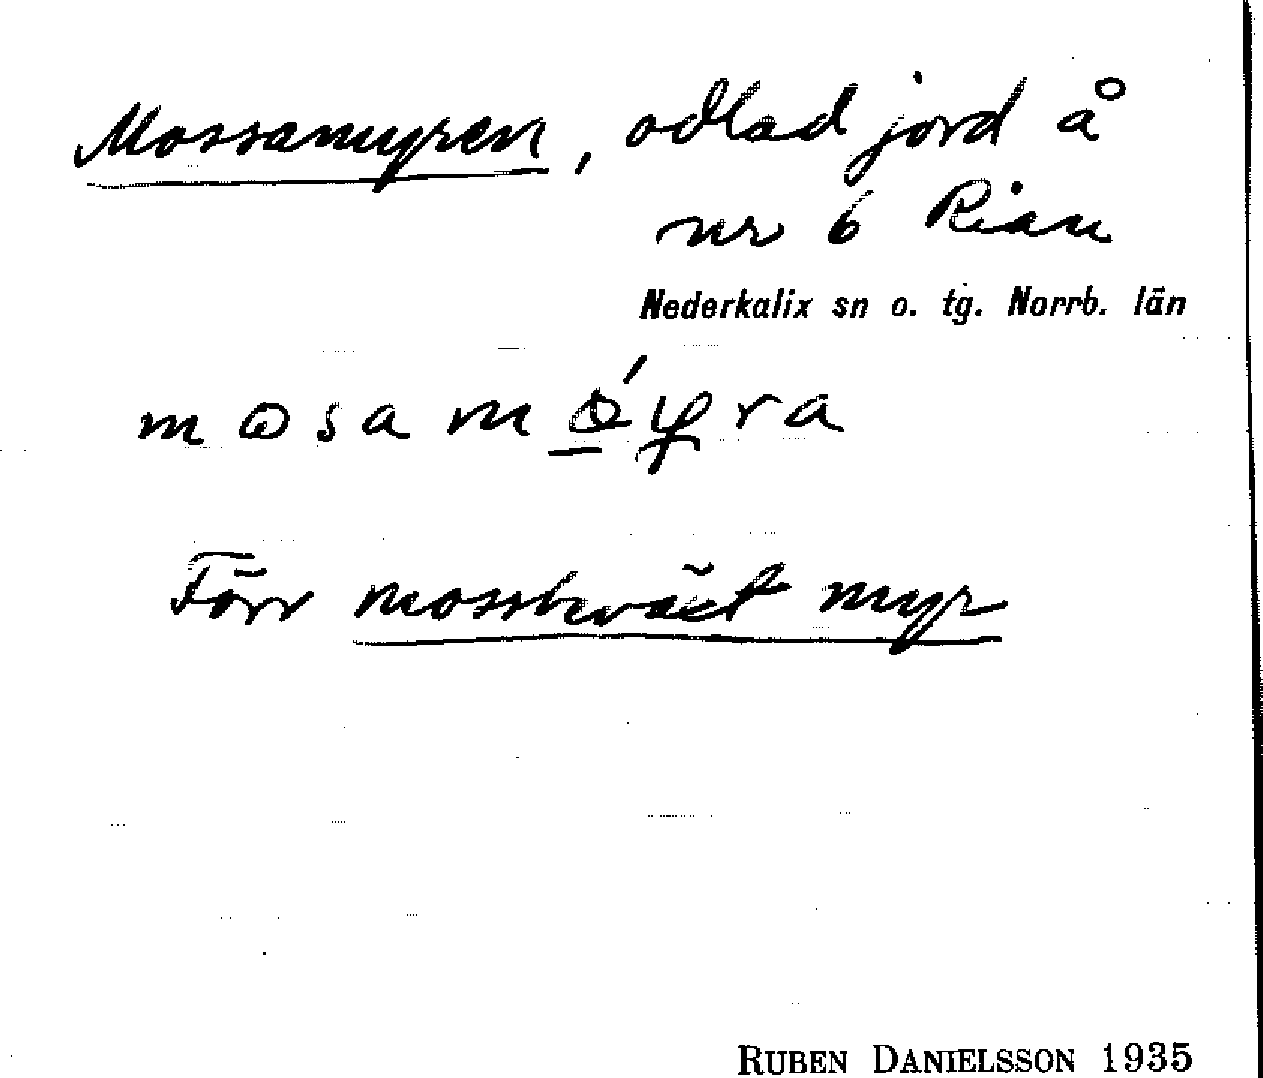 Mossamyren, odlad jord å
nr 6 Rian
Nederkalix sn o. tg. Norrb. län
Förr mossbeväxt myr
RUBEN DANIELSSON 1935